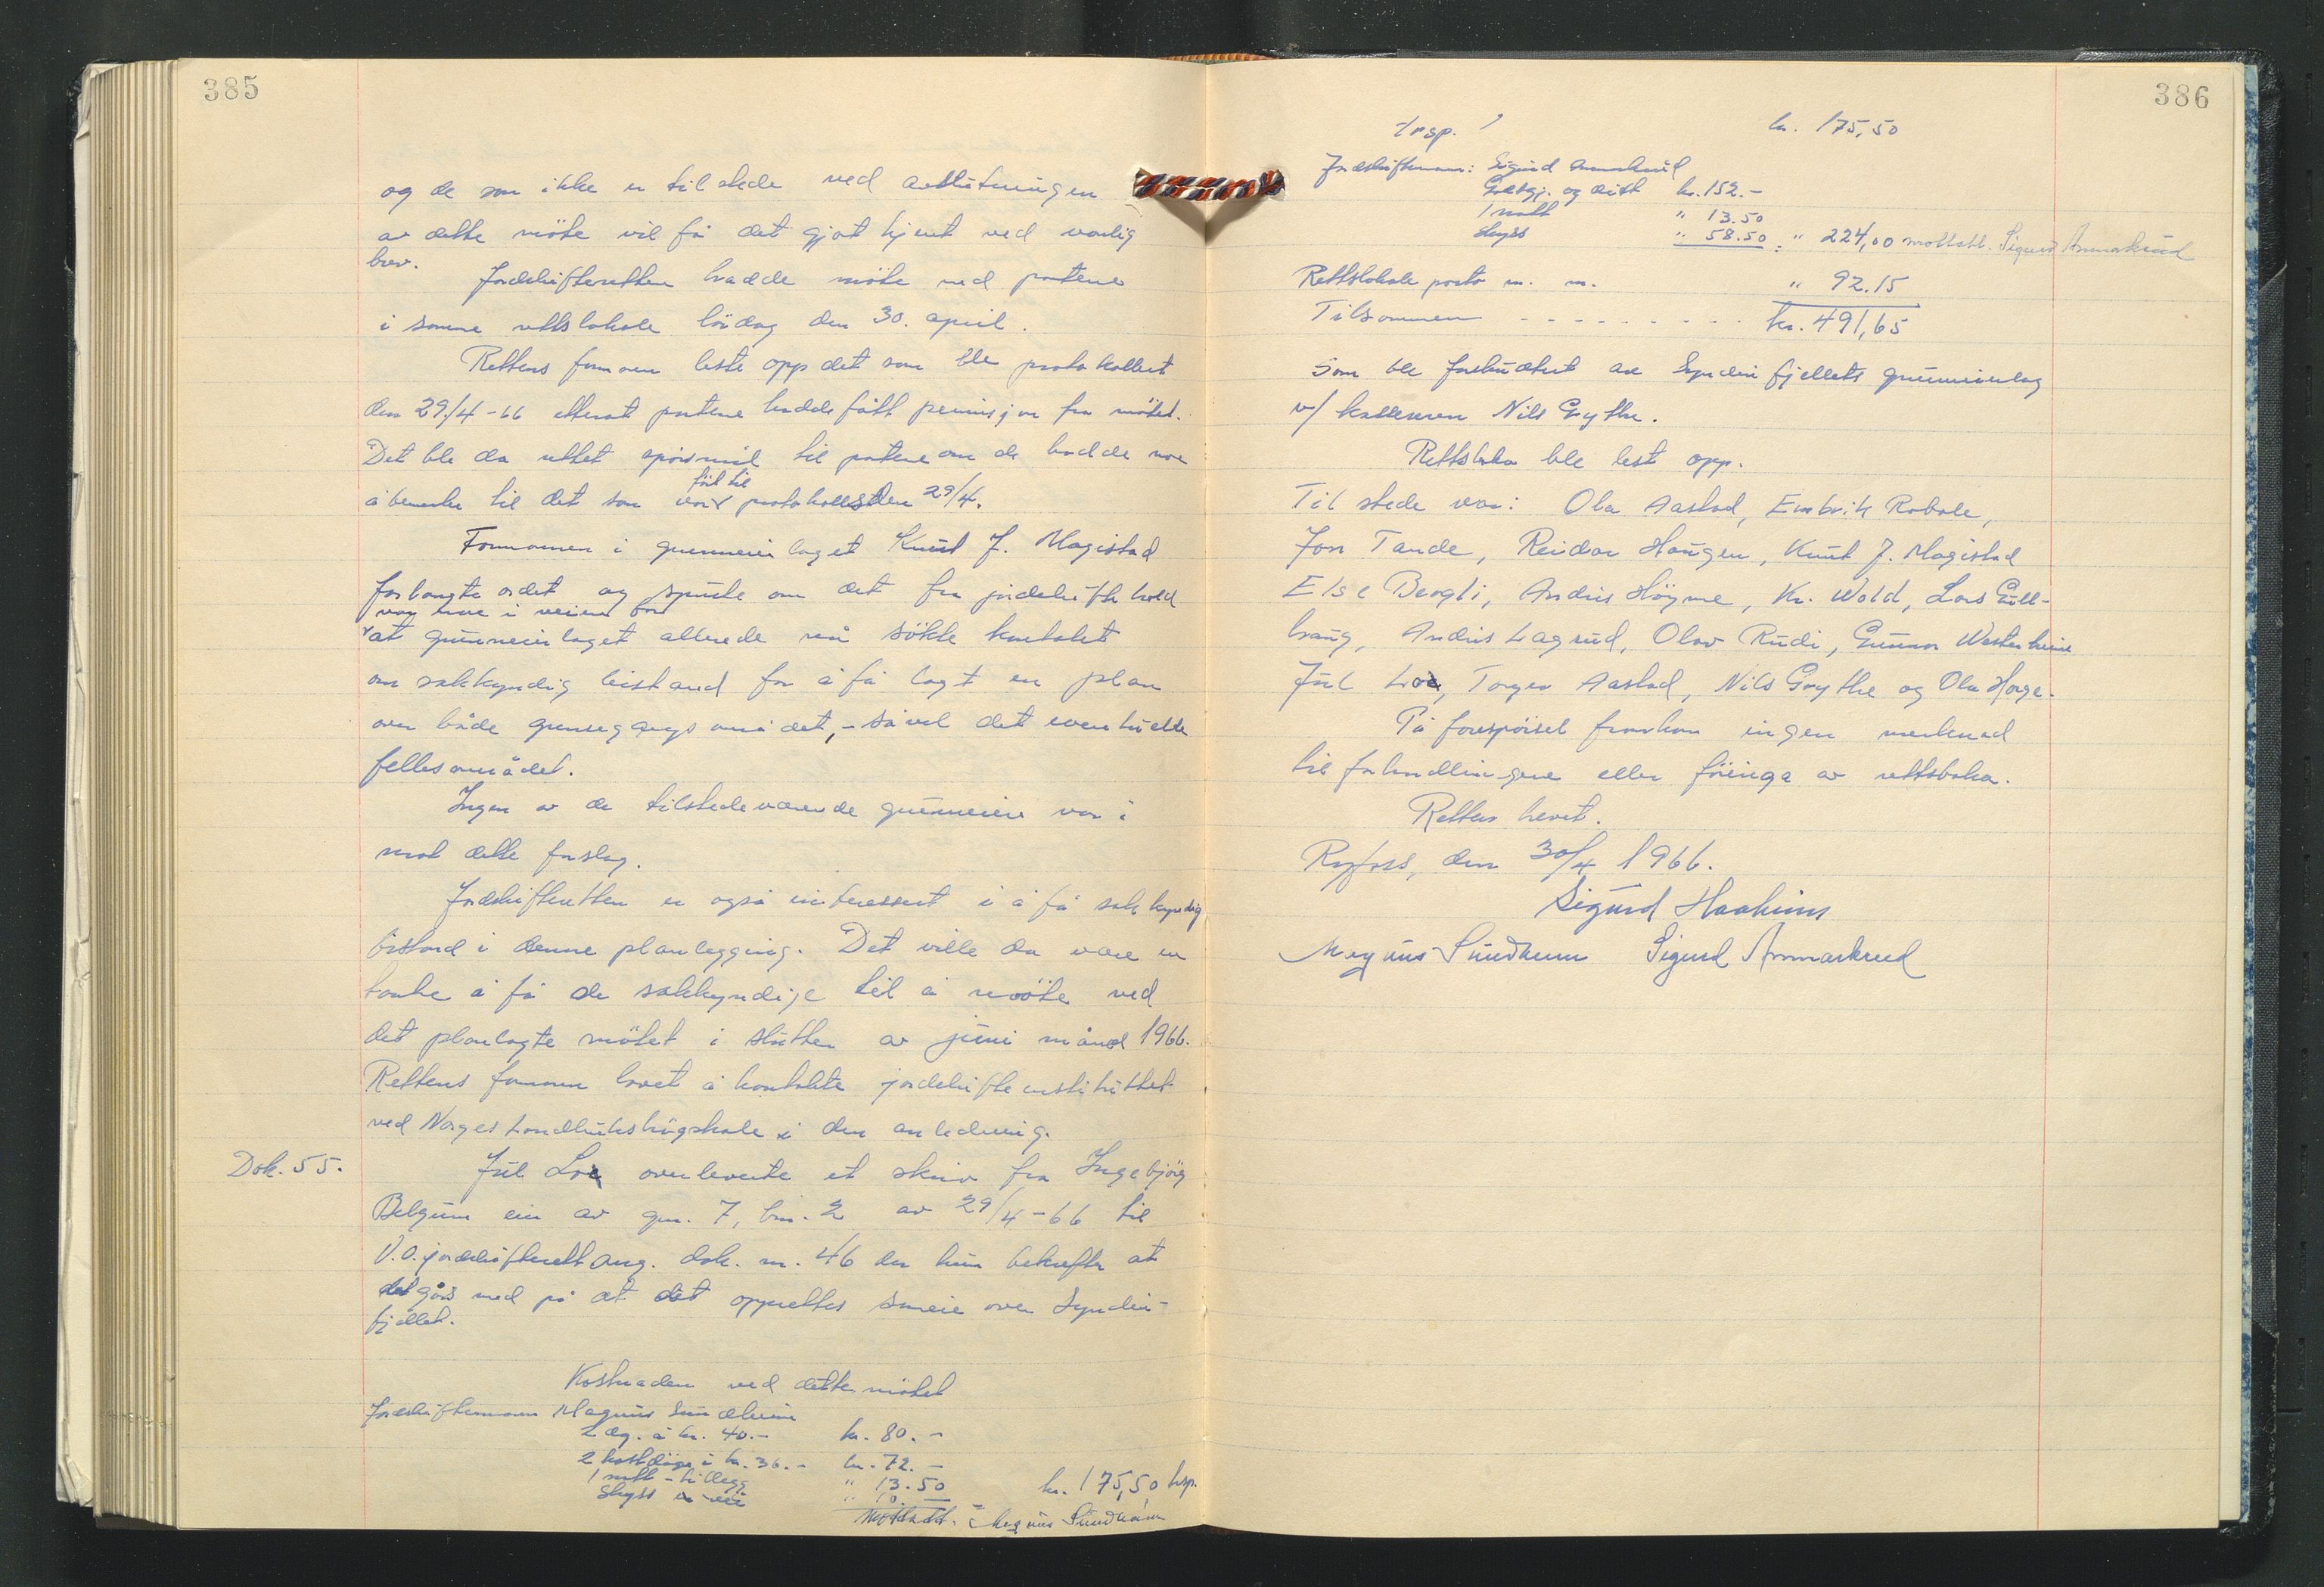 385
og de som ikke er til stede ved avslutningen
av dette möte vil få det gjort kjent ved vanlig
brev.
Jordskifteretten hadde möte med partene
i samme rettslokale lördag den 30. april.
Rettens formann leste opp det som ble protokollert
den 29/4-66 etterat partene hadde fått permisjon fra mötet.
Det ble da rettet spörsmål til partene om de hadde noe
fört til
å bemerke til det som var protokollsden 29/4.
Formannen i grunneierlaget Knut J. Magistad
forlangte ordet og spurte om det fra jordskifte hold
var noe i veien for
at grunneierlaget allerede nå sökte kontaktet
om sakkyndig bistand for å få lagt en plan
over både grensegangs området, - såvel det eventuelle
fellesområdet.
Ingen av de tilstedeværende grunneiere var i
mot dette forslag.
Jordskifteretten er også interessert i å få sakkyndig
bistand i denne planlegging. Det ville da være en
tanke å få de sakkyndige til å möte ved
det planlagte mötet i slutten av juni måned 1966.
Rettens formann lovet å kontakte jordskifteinstituttet
ved Norges Landbrukshögskole i den anledning.
Dok. 55.
Jul Loe overleverte et skriv fra Ingebjörg
Belgum eier av gnr. 7, bnr. 2 av 29/4-66 til
V.O. jordskifterett ang. dok. nr. 46 der hun bekrefter at
det gås med på at det opprettes sameie over Syndin-
fjellet.
Kostnaden ved dette mötet
Jordskiftemann Magnus Sundheim
2 dg. à kr. 40.- kr. 80.-
2 kostdöger à kr. 36.- kr. 72.-
1 natt-tillegg " 13.50
Skyss " 10.- kr. 175,50 trsp.
Mottatt. Magnus Sundheim
386
Trsp. kr. 175,50
Jordskiftemann: Sigurd Ammarkrud
Godtgj. og diett kr. 152.-
1 natt " 13.50
Skyss " 58.50 = " 224,00 mottatt. Sigurd Ammarkrud
Rettslokale porto m. m. " 92.15
Tilsammen - - - - - - - - - kr. 491,65
Som ble forskuttert av Syndinfjellets grunneierlag
v/ kasseren Nils Grythe.
Rettsboka ble lest opp.
Til stede var: Ola Aastad, Embrik Robole,
Jon Tande, Reidar Haugen, Knut J. Magistad
Else Bergli, Andris Höyme, Kr. Wold, Lars Gull-
haug, Andris Lagrud, Olav Rudi, Gunnar Westerheim
Jul Loe, Torger Aastad, Nils Grythe og Ola Horge.
På forespörsel framkom ingen merknad
til forhandlingene eller föringa av rettsboka.
Retten hevet.
Ryfoss, den 30/4 1966.
Sigurd Haaheim
Magnus Sundheim Sigurd Ammarkrud